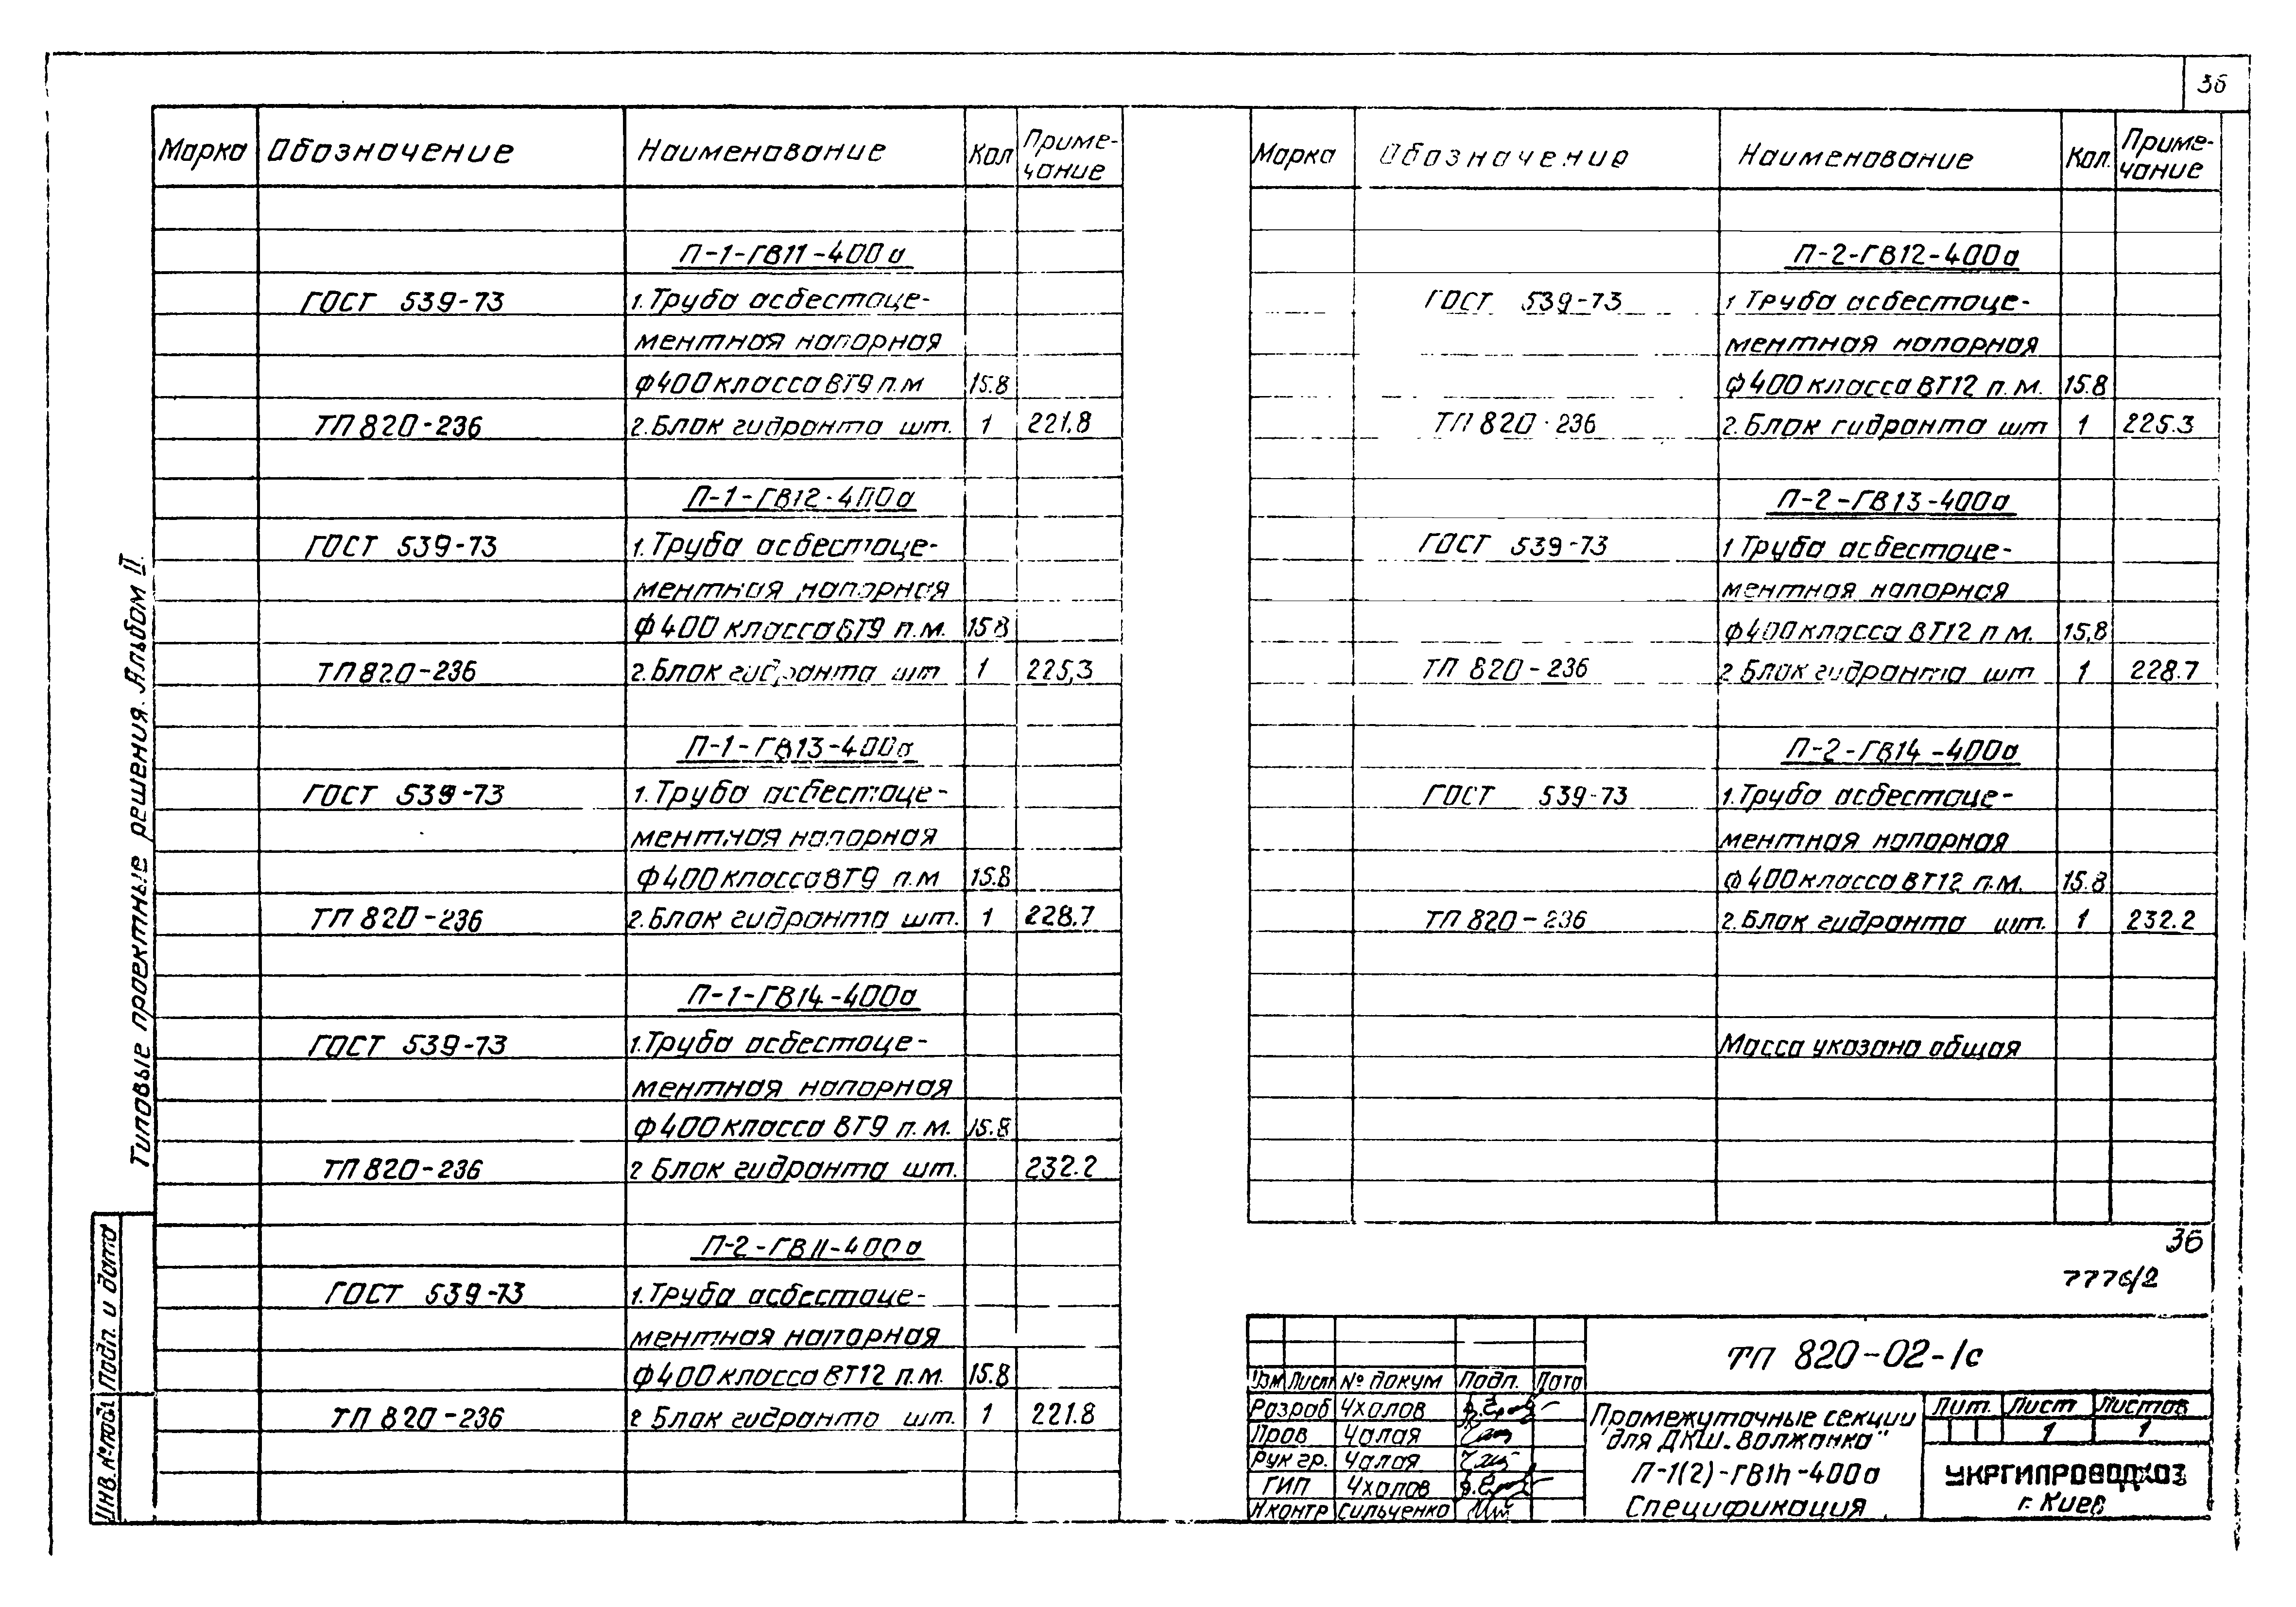 36
Марка Обозначение Наименование Кол Приме-
чание
П-1-ГВ11-400а
ГОСТ 539-73 1. Труба асбестоце-
ментная напорная
ф400 класса ВТ9 п.м 15.8
ТП 820-236 2. Блок гидранта шт. 1 221.8
П-1-ГВ12-400а
ГОСТ 539-73 1. Труба асбестоце-
ментная напорная
ф400 класса ВТ9 п.м. 15.8
ТП 820-236 2. Блок гидранта шт 1 225,3
П-1-ГВ13-400а
ГОСТ 539-73 1. Труба асбестоце-
ментная напорная
ф400 класса ВТ9 п.м 15.8
ТП 820-236 2. Блок гидранта шт. 1 228.7
П-1-ГВ14-400а
ГОСТ 539-73 1. Труба асбестоце-
ментная напорная
ф400 класса ВТ9 п.м. 15.8
ТП 820-236 2 Блок гидранта шт. 232.2
П-2-ГВ11-400а
ГОСТ 539-73 1. Труба асбестоце-
ментная напорная
ф400 класса ВТ12 п.м. 15.8
ТП 820-236 2 Блок гидранта шт. 1 221.8
Марка Обозначение Наименование Кол. Приме-
чание
П-2-ГВ12-400а
ГОСТ 539-73 1 Труба асбестоце-
ментная напорная
ф400 класса ВТ12 п.м. 15.8
ТП 820-236 2. Блок гидранта шт 1 225.3
П-2-ГВ13-400а
ГОСТ 539-73 1 Труба асбестоце-
ментная напорная
ф400 класса ВТ12 п м. 15,8
ТП 820-236 2 Блок гидранта шт 1 228.7
П-2-ГВ14-400а
ГОСТ 539-73 1. Труба асбестоце-
ментная напорная
ф400 класса ВТ12 п.м. 15.8
ТП 820-236 2. Блок гидранта шт. 1 232.2
Масса указана общая
36
7776/2
Типовые проектные решения. Альбом II.
Подп. и дата
Инв. № подл
ТП 820-02-1с
Изм Лист № докум Подп. Дата
Разраб Чхалов
Пров Чалая
Рук гр. Чалая
ГИП Чхалов
Н контр Сильченко
Промежуточные секции
для ДКШ „Волжанка"
П-1(2)-ГВ1n-400а
Спецификация
Лит. Лист Листов
1 1
УКРГИПРОВОДХОЗ
г. Киев